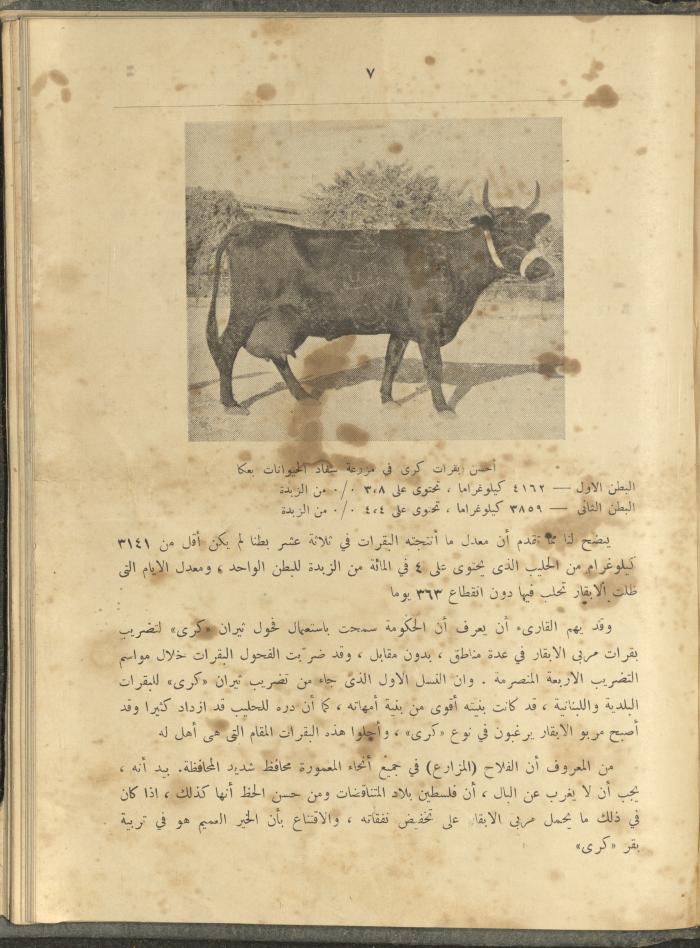 ٧
أحسن بقرات كرى في مزرعة سفاد الحيوانات بعكا
البطن الاول — ٤١٦٢ كيلوغراما ، تحتوى على ٣،٨ ٠/٠ من الزبدة
البطن الثانى — ٣٨٥٩ كيلوغراما ، تحتوى على ٤،٤ ٠/٠ من الزبدة
يتضح لنا مما تقدم أن معدل ما أنتجته البقرات في ثلاثة عشر بطنا لم يكن أقل من ٣١٤١
كيلوغرام من الحليب الذى يحتوى على ٤ في المائة من الزبدة للبطن الواحد ، ومعدل الايام التى
ظلت الابقار تحلب فيها دون انقطاع ٣٦٣ يوما
وقد يهم القارىء أن يعرف أن الحكومة سمحت باستعمال فحول ثيران «كرى» لتضريب
بقرات مربى الابقار في عدة مناطق ، بدون مقابل ، وقد ضربت الفحول البقرات خلال مواسم
التضريب الاربعة المنصرمة . وان النسل الاول الذى جاء من تضريب ثيران «كرى» للبقرات
البلدية واللبنانية ، قد كانت بنيته أقوى من بنية أمهاته ، كما أن دره للحليب قد ازداد كثيرا وقد
أصبح مربو الابقار يرغبون في نوع «كرى» ، وأحلوا هذه البقرات المقام التى هى أهل له
من المعروف أن الفلاح (المزارع) في جميع أنحاء المعمورة محافظ شديد المحافظة. بيد أنه ،
يجب أن لا يغرب عن البال ، أن فلسطين بلاد المتناقضات ومن حسن الحظ أنها كذلك ، اذا كان
في ذلك ما يحمل مربى الابقار على تخفيض نفقاته ، والاقتناع بأن الخير العميم هو في تربية
بقر «كرى»